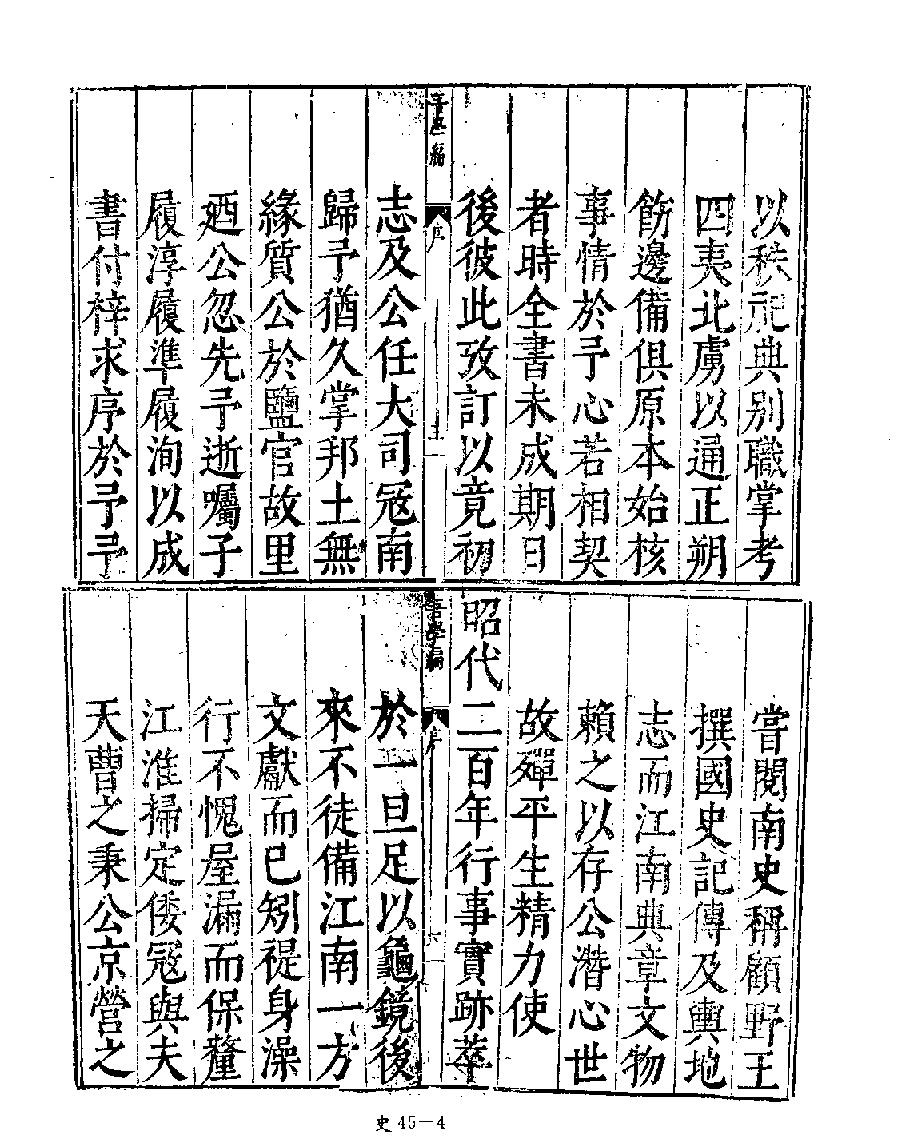 以秩祀典别職掌考
四夷北虜以通正朔
飭邊備俱原本始核
事情於予心若相契
者時全書未成期日
後彼此攷訂以竟初
吾學編
序
五
志及公任大司冦南
歸予猶久掌邦土無
緣質公於鹽官故里
廼公忽先予逝囑子
履淳履準履洵以成
書付梓求序於予予
嘗閱南史稱顧野王
撰國史記傳及輿地
志而江南典章文物
賴之以存公潛心世
故殫平生精力使
昭代二百年行事實跡萃
吾學編
序
六
於一旦足以龜鏡後
來不徒備江南一方
文獻而已矧禔身澡
行不愧屋漏而保釐
江淮掃定倭冦與夫
天曹之秉公京營之
史45-4